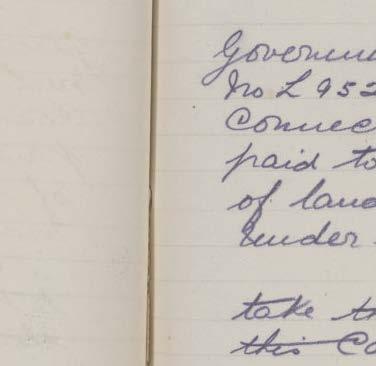 Governme
No L 952
Connec
paid to
of land
under
take th
this Co